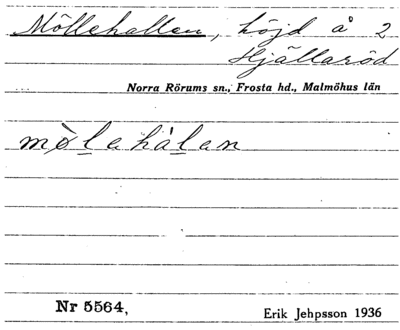 Möllehallen, höjd å 2
Hjällaröd
Norra Rörums sn., Frosta hd., Malmöhus län
mø̀lehálen
Nr 5564,
Erik Jehpsson 1936